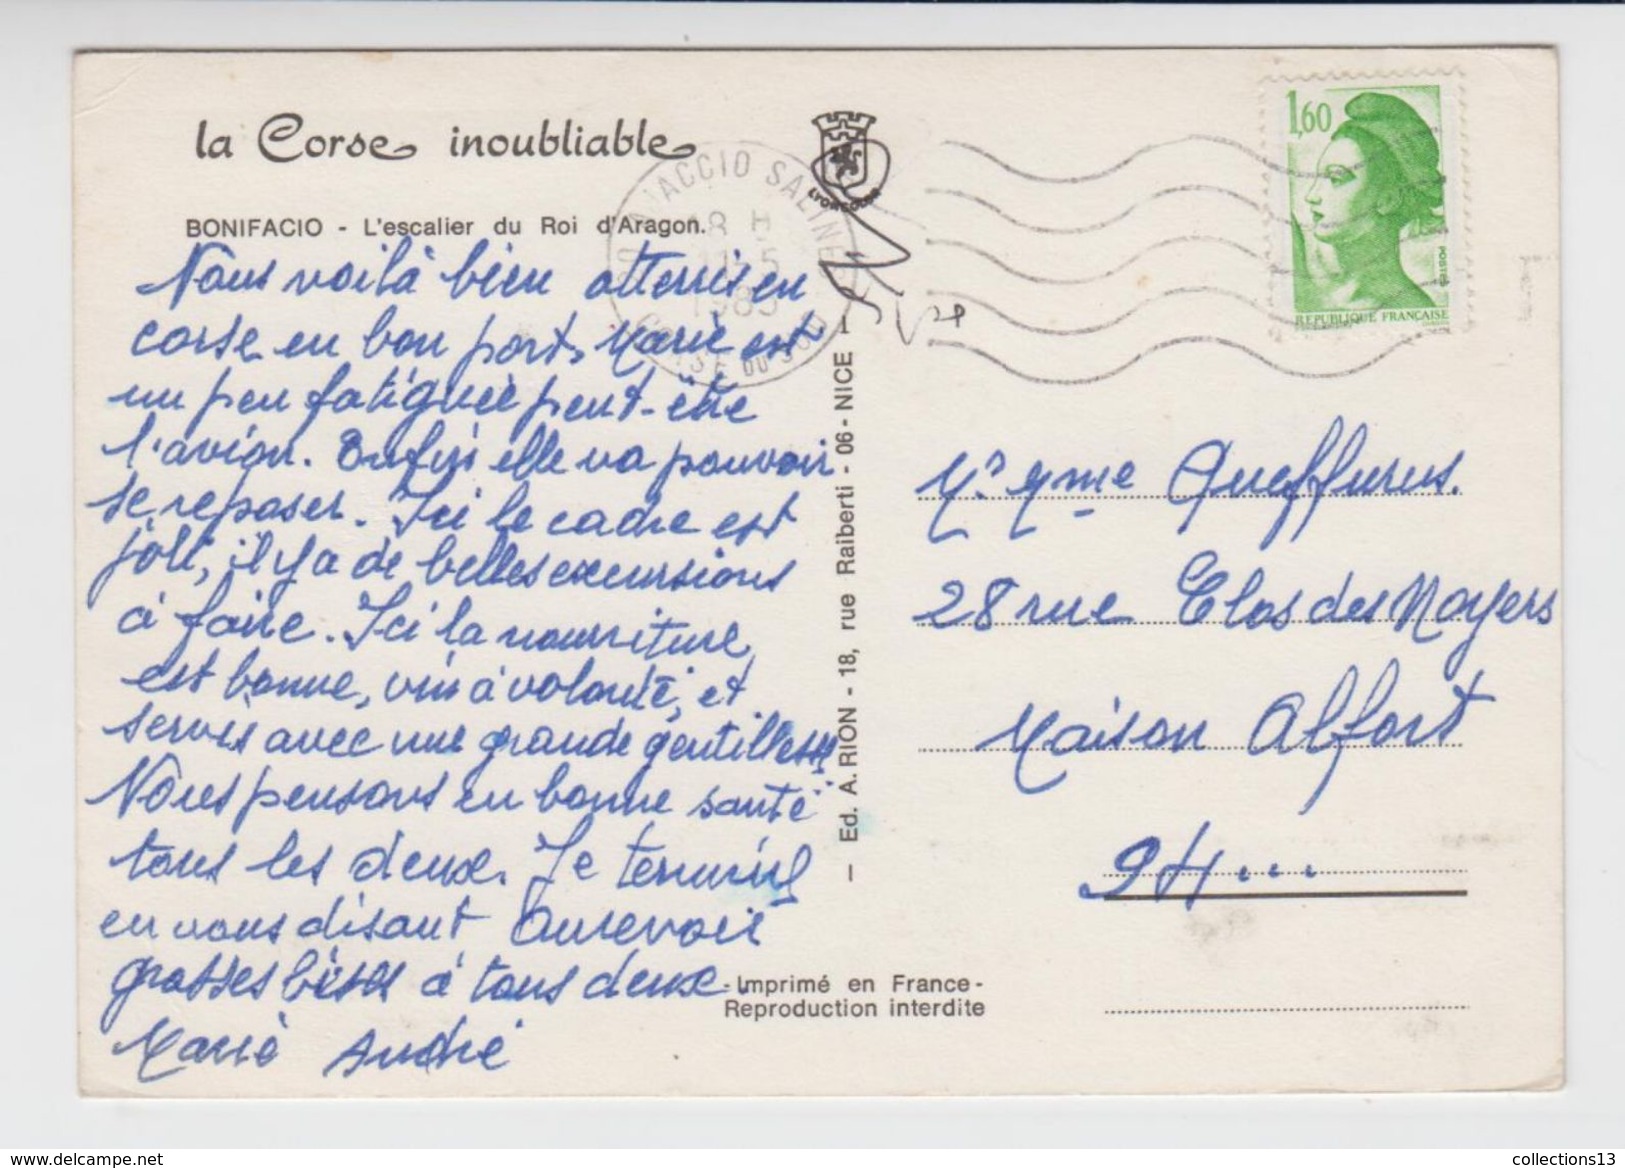 la Corse inoubliable
BONIFACIO - L'escalier du Roi d'Aragon.
Nous voilà bien atterris en
corse en bon port, Marie est
un peu fatiguée peut-être
l'avion. Enfin elle va pouvoir
se reposer. Ici le cadre est
joli, il y a de belles excursions
à faire. Ici la nourriture
est bonne, vin à volonté, et
servis avec une grande gentillesse
Nous pensons en bonne santé
tous les deux. Je termine
en vous disant Aurevoir
grosses bises à tous deux.
Marie André
AJACCIO SALINES
18 H
11-5
198
CORSE DU SUD
LYONCOLOR
Ed. A. RION - 18, rue Raiberti - 06 - NICE
- Imprimé en France -
Reproduction interdite
1,60
POSTES
REPUBLIQUE FRANÇAISE
Mr Mme
28 rue Clos des Noyers
Maison Alfort
94...
collections13